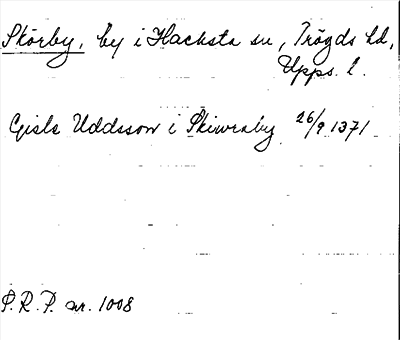 Skörby, by i Hacksta sn, Trögds hd,
Upps. l.
Gisle Uddsson i Skiwraby 26/9 1371
P.R.P. nr. 1008